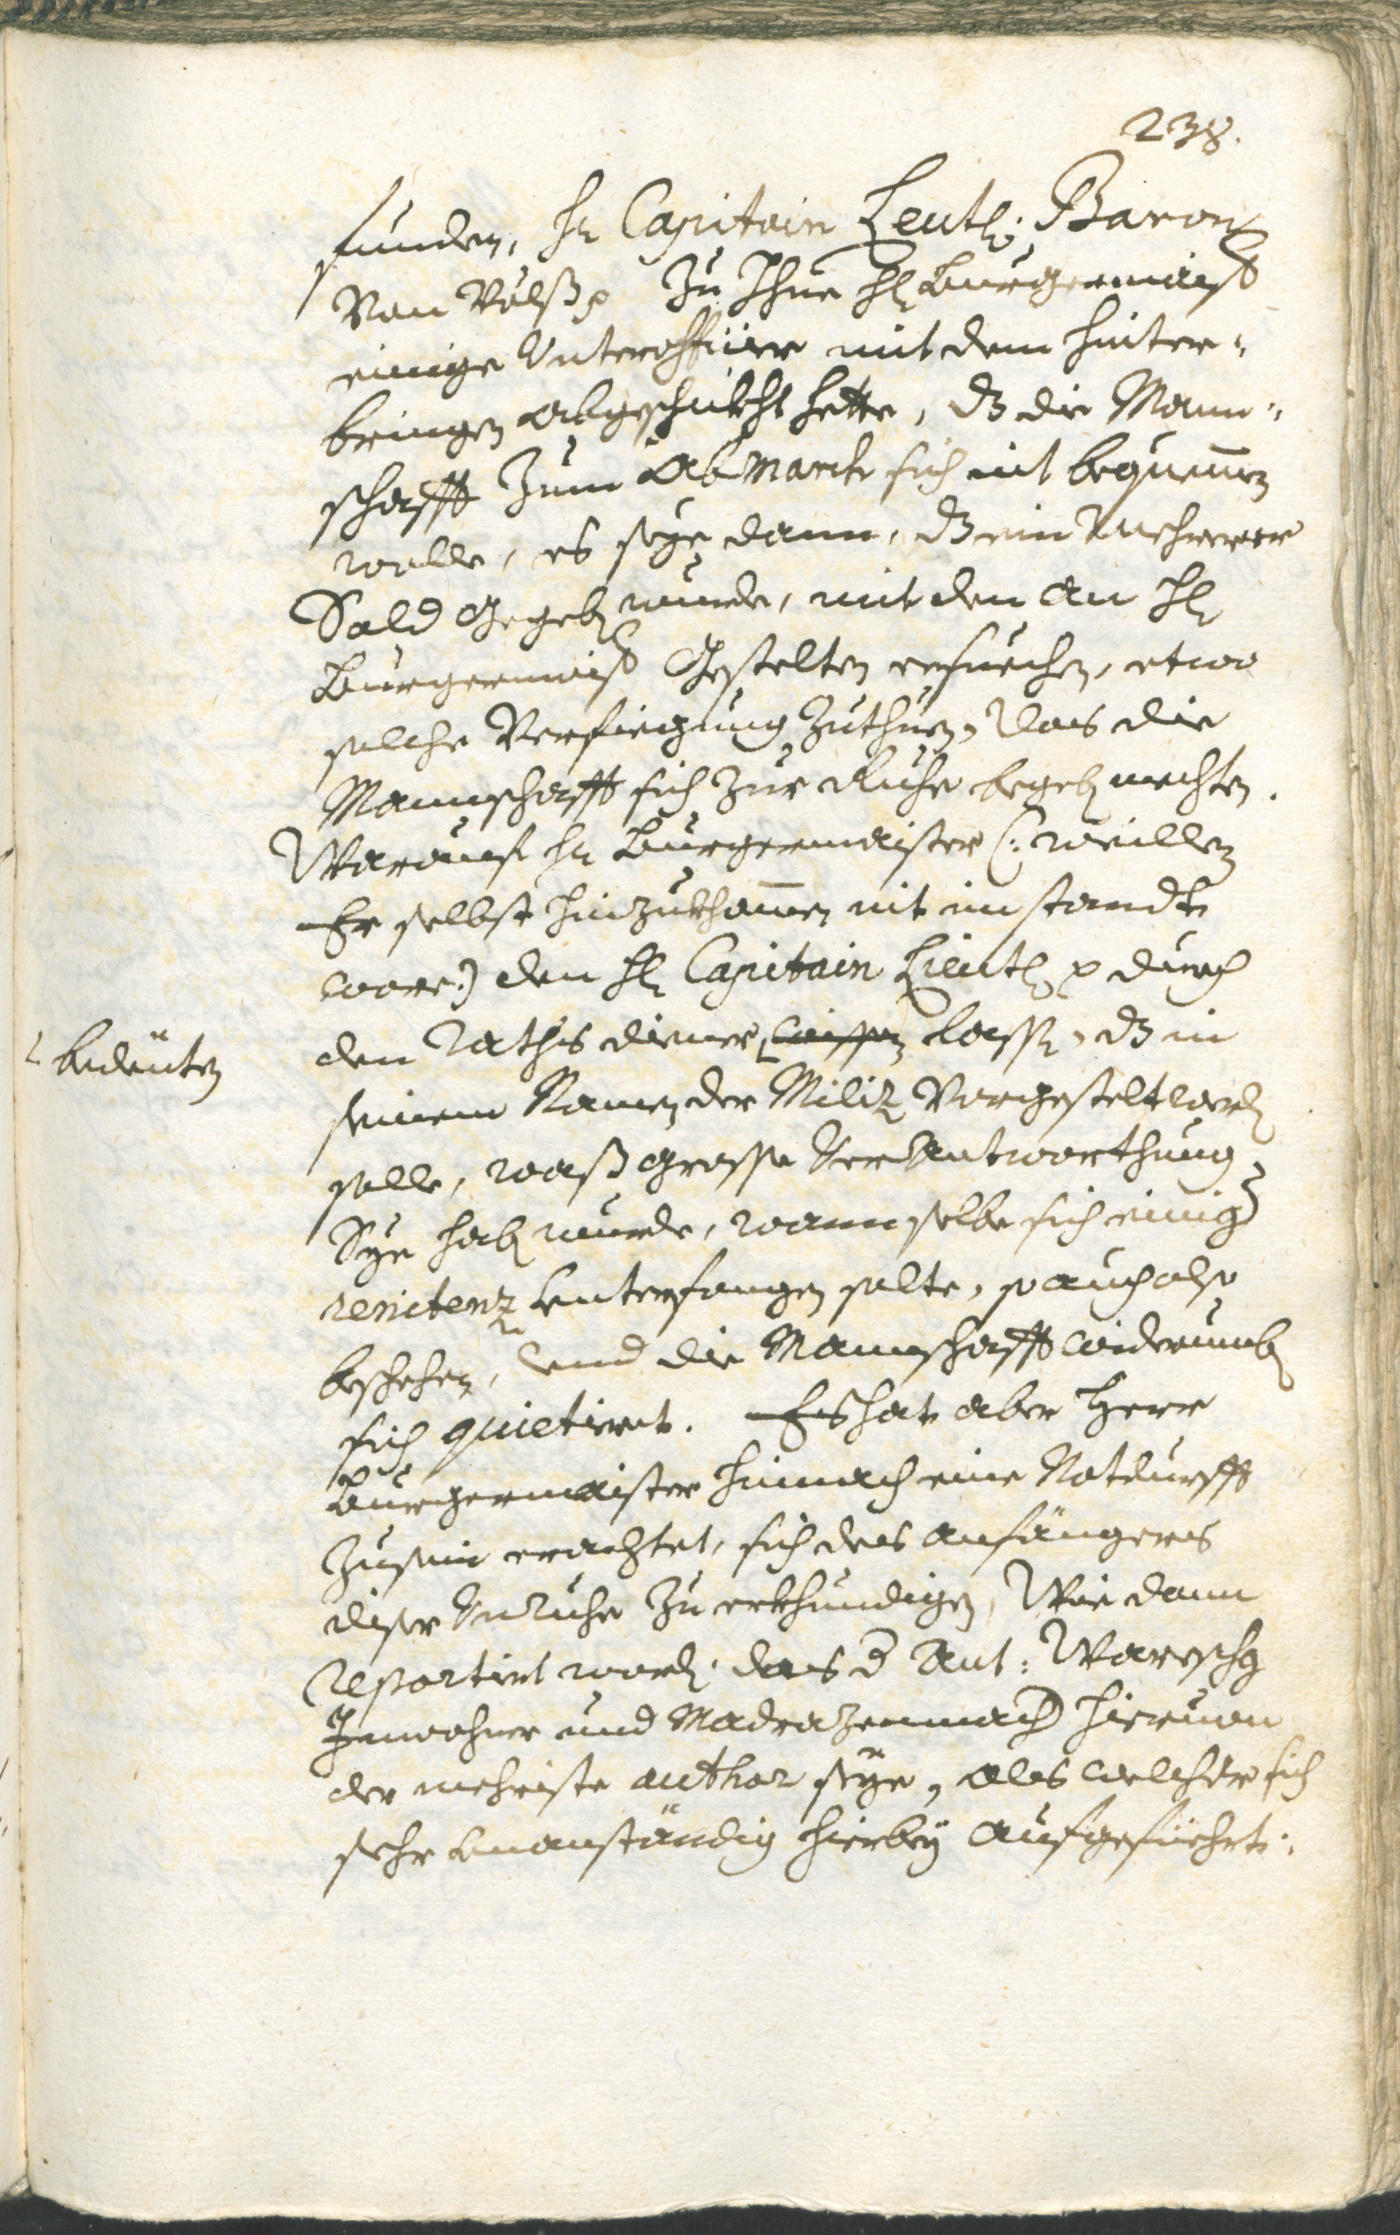 238.
funden, H: Capitain Leuth: Baron
Von Völß p Zu Ihme H: Burgermaist:
einige Unterofficier mit dem hinter-
bringen abgeschikht hette, dz die Mann-
schafft Zum Abmarch sich nit bequemen
wolle, es seye dann, dz ein Mehrerer
Sold gegeben wurde, mit dem an H:
Burgermaist: gestelten ersuechen, etwo
solche Verfiegung Zuthuen, das die
Mannschafft sich Zur Ruhe begeben mechten.
Warauf H: Burgermaister (: weillen
Er selbst hinzukhommen nit im standte
ware :) den H: Capitain Lieuth: p durch
den Raths diener wissen lassen, dz in
bedeuten
seinem Namen der Militz Vorgestelt werden
solle, waß grosse Verantworthung
Sye haben wurde, wann selbe sich einiger
renitenz unterfangen solte, so auch also
beschehen, und die Mannschafft widerumben
sich quietiert. Es hat aber Herr
Burgermaister hinnach eine Notdurfft
Zusein erachtet, sich des anfängers
diser Unruhe Zu erkhundigen, Wie dann
reportiert worden, das d Ant:
Inwohner und Madrazenmacher hieruon
der mehriste author seye, als welcher sich
sehr unanständig hierbey aufgefiehrt.